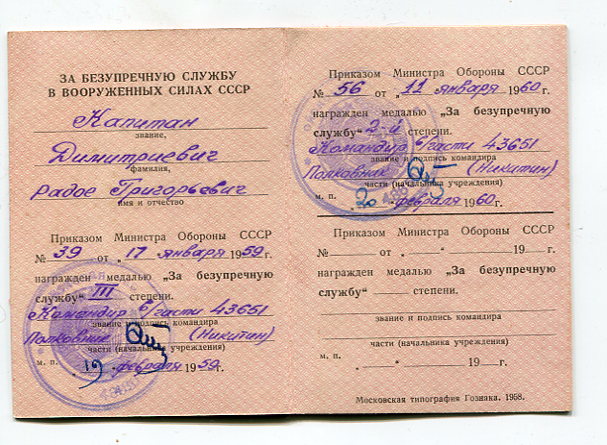 ЗА БЕЗУПРЕЧНУЮ СЛУЖБУ
В ВООРУЖЕННЫХ СИЛАХ СССР
Капитан
звание,
Димитриевич
фамилия,
Радое Григорьевич
имя и отчество
Приказом Министра Обороны СССР
№ 39 от „17 января 1959 г.
награжден медалью „За безупречную
службу" III степени.
Командир в/части 43651
звание и подпись командира
Полковник (Никитин)
части (начальника учреждения)
м. п. 19 „февраля 1959 г.
Приказом Министра Обороны СССР
№ 56 от „11 января 1960 г.
награжден медалью „За безупречную
службу" 2-й степени.
Командир в/части 43651
звание и подпись командира
Полковник (Никитин)
части (начальника учреждения)
м. п. „20 „февраля 1960 г.
Приказом Министра Обороны СССР
№ — от „—" — 19— г.
награжден медалью „За безупречную
службу" — степени.
звание и подпись командира
части (начальника учреждения)
м. п. „—" — 19— г.
Московская типография Гознака. 1958.